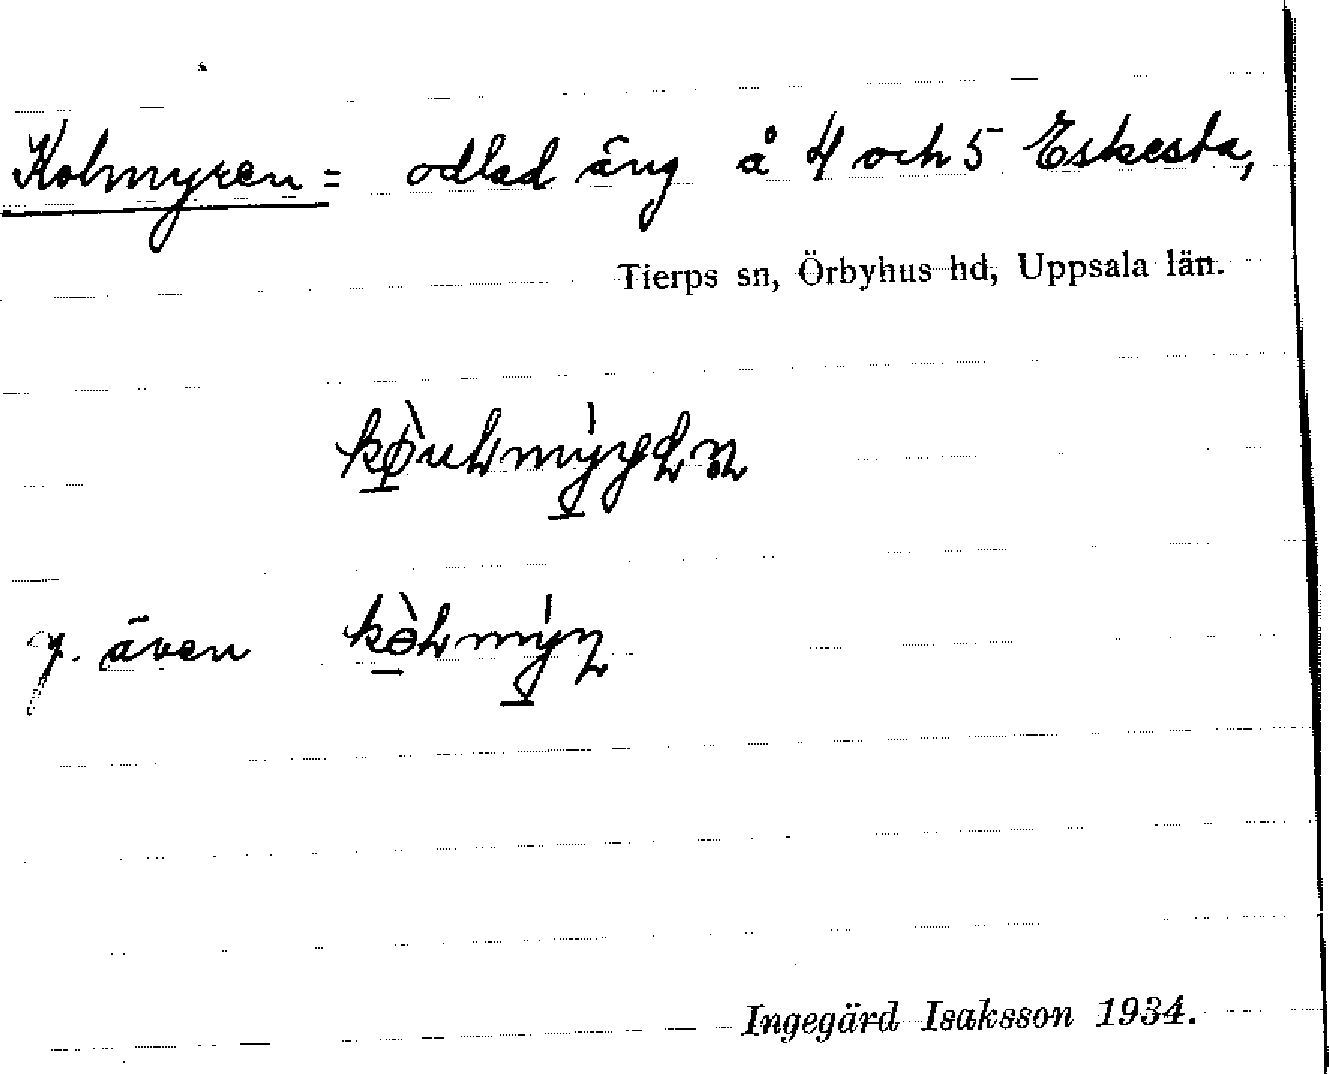 Kolmyren = odlad äng å 4 och 5 Eskesta,
Tierps sn, Örbyhus hd, Uppsala län.
y. även
Ingegärd Isaksson 1934.